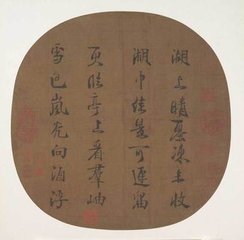 湖上晴寒凍未收
湖中佳景可遲留
更臨亭上看羣岫
雪色嵐光向酒浮